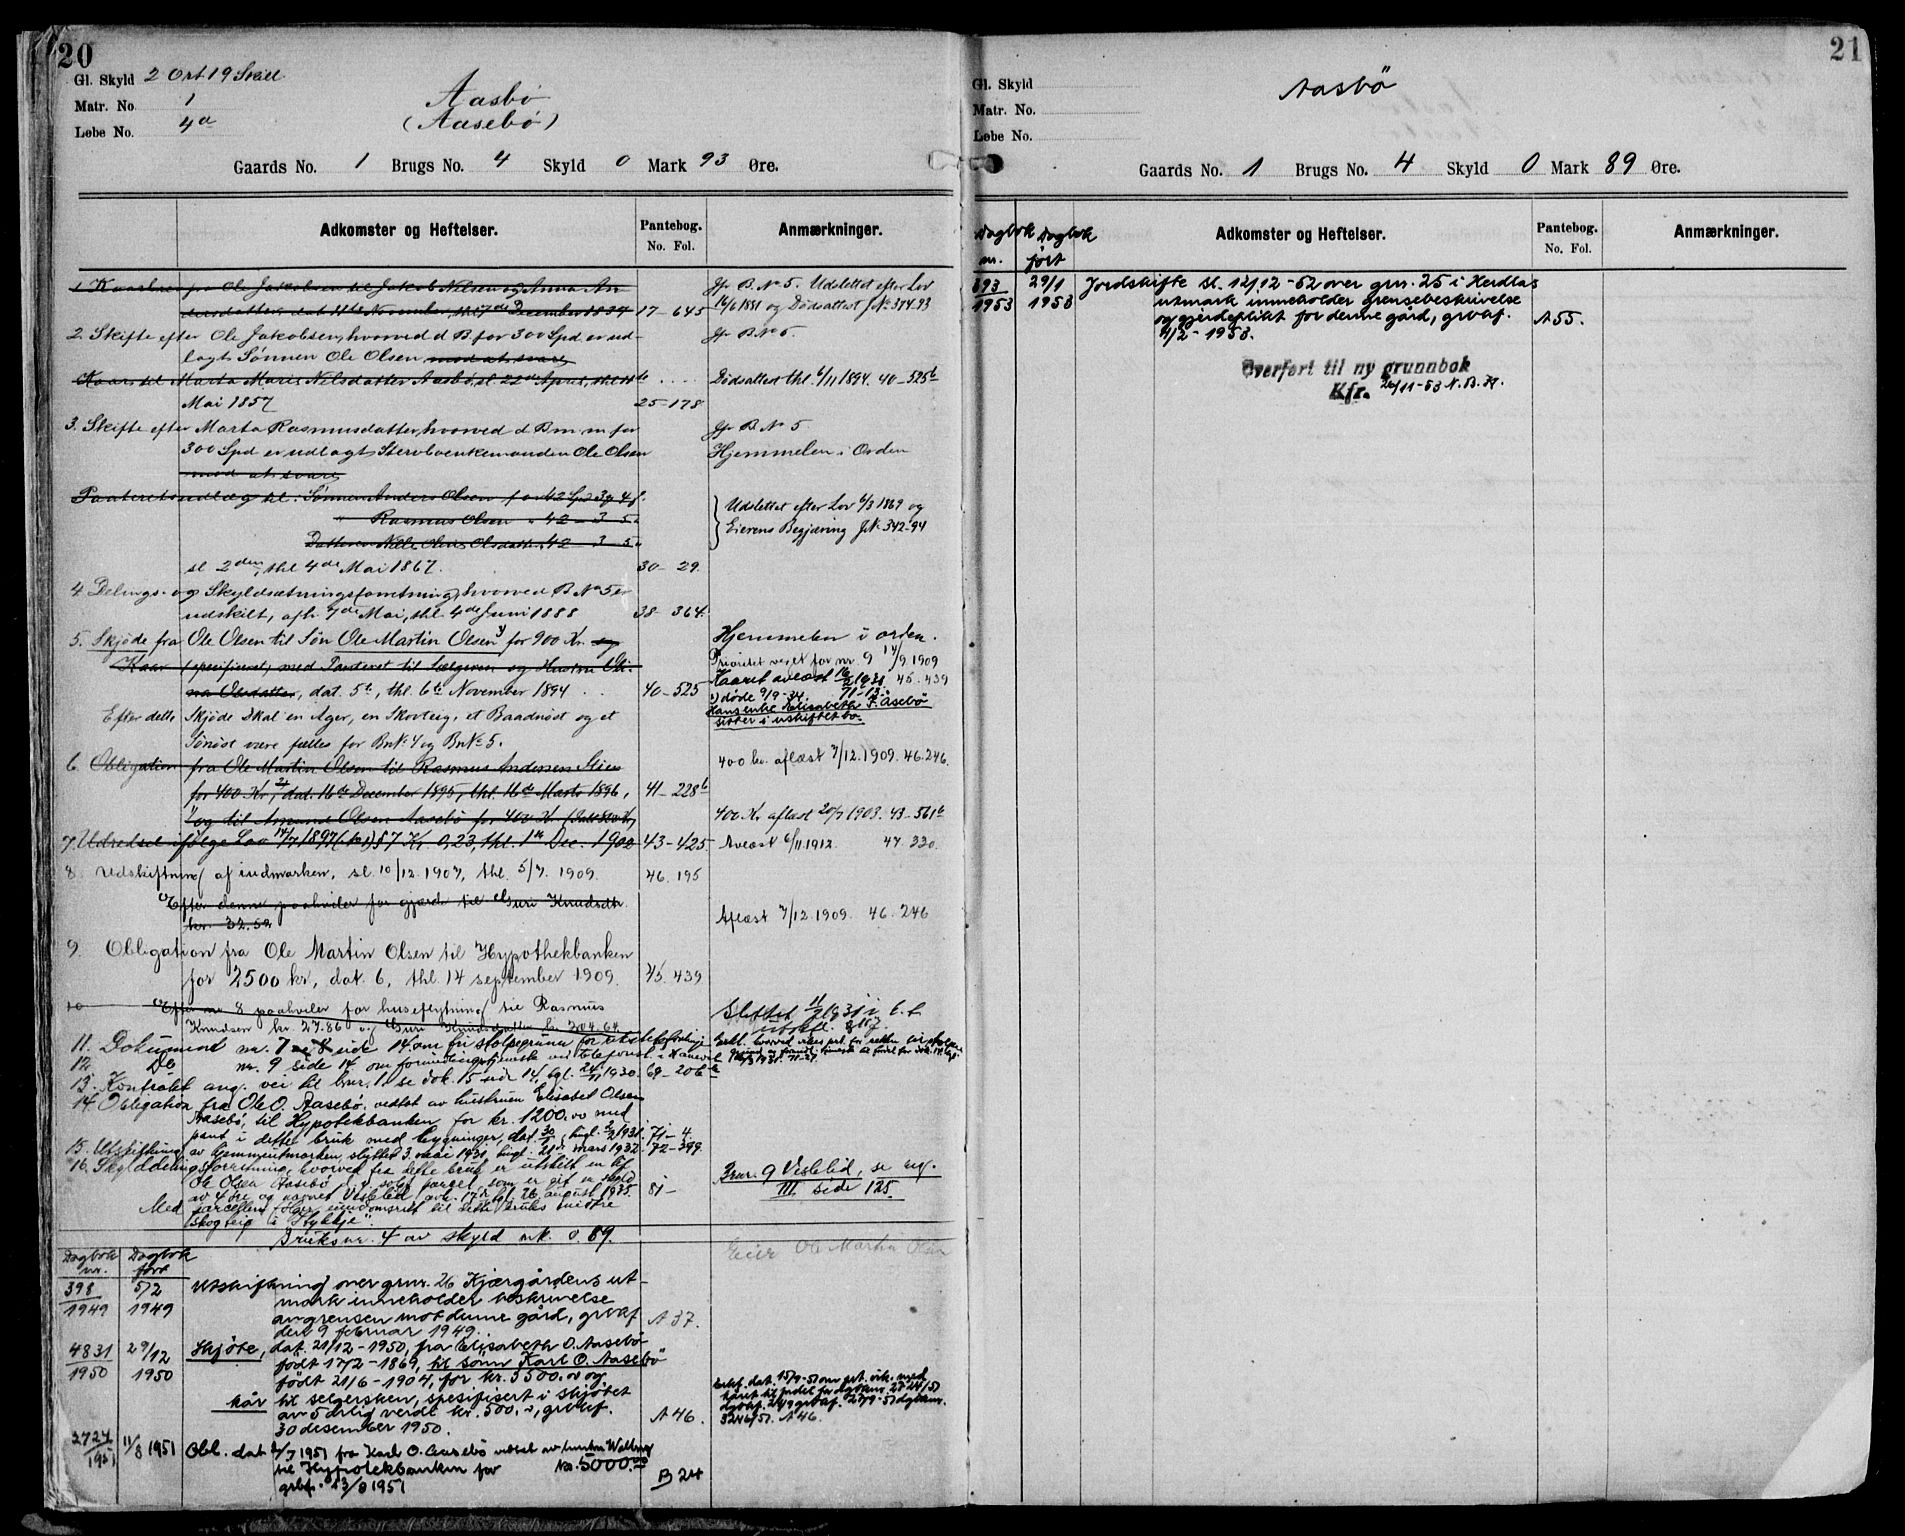 20
Gl. Skyld 2 Ort 19 Skill
Matr. No. 1
Løbe No. 4a
Aasbö
(Aasebö)
Gaards No. 1 Brugs No. 4 Skyld 0 Mark 93 Øre.
Adkomster og Heftelser.
Pantebog.
No. Fol.
Anmærkninger.
1. Kaarbrev fra Ole Jakobsen til Jakob Nilsen og Anna An
dersdatter, dat. 11te November, thl. 7de December 1834 17-645
jfr B.No 5. Udslettet efter Lov
16/6 1881 og Dødsattest J.No. 374.93
2. Skifte efter Ole Jakobsen, hvorved d B for 300 Spd er ud-
lagt Sönnen Ole Olsen med at svare
jfr B.No 5.
Kaar til Marta Marie Nilsdatter Aasbö, sl. 22de April, thl.
Mai 1857 25-178
Dödsattest thl. 6/11 1894. 40-525b
3. Skifte efter Marta Rasmusdatter, hvorved d B m m for
300 Spd er udlagt Stervboenkemanden Ole Olsen
med at svare
jfr B.No 5
Hjemmelen i Orden
Panteretsudlæg til: Sønnen Anders Olsen for 42 Spd 3 4
" Rasmus Olsen " 42 - 3 5
Datteren Olsdatter 42 - 3 5
sl 2den, thl 4de Mai 1867. 30-29.
Udslettet efter Lov 6/3 1869 og
Eierens Begjæring J.No. 342-94
4. Delings- og Skyldsætningsforretning, hvorved B No 5 er
udskilt, afh. 7de Mai, thl. 4de Juni 1888 38-364.
5. Skjöde fra Ole Olsen til Sön Ole Martin Olsen 1) for 900 Kr. og
Kaar (specificeret) med Panteret til Sælgeren og Hustru Oli-
na Olsdatter, dat. 5te, thl. 6te November 1894 40-525
Hjemmelen i orden.
Prioritet veget for nr. 9 14/9 1909
Kaaret avlæst 1931 45.439
71-13.
1) döde 9/9-34.
Hans enke Elisabeth F. Åsebö
sitter i uskiftet bo.
Efter dette Skjöde skal en Ager, en Skovteig, et Baadnöst og et
Sönöst være fælles for BrNo. 4 og BrNo. 5.
6. Obligation fra Ole Martin Olsen til Rasmus Andersen
for 400 Kr, dat. 16de December 1895, thl. 16de Marts 1896, 41-228b
og til Amund Olsen Aasebö for 400 Kr.
400 kr. aflæst 7/12. 1909. 46.246.
400 Kr aflæst 20/7 1903. 43-561b
7. Udredsel ifölge Lov 1897 § 7 Kr 0,23, thl. 1ste Dec. 1902 43-425.
Avlæst 6/11.1912. 47.330.
8. Udskiftning af indmarken, sl. 10/12.1907, thl. 5/7. 1909. 46.195
Efter denne paahviler for gjærde til Guri Knudsdtr.
kr. 32.52
Aflæst 7/12.1909. 46.246
9. Obligation fra Ole Martin Olsen til Hypothekbanken
for 2500 kr., dat. 6, thl. 14 september 1909. 45.439
10 Efter nr 8 paahviler for husflytning til Rasmus
Knudsen kr. 27.86 og Guri Knudsdatter kr. 304.64
Slettet 1931
11. Dokument nr. 7 side 14 om fri stolpegrunn for
12. Do nr. 9 side 14 om 1930. 69-206
13. Kontrakt ang. vei til bnr. 1. se dok. 15 side 14, tgl. 1930.
14. Obligation fra Ole O. Aasebö, vedtat av hustruen Elisabet Olsen
Aasebö, til Hypotekbanken for kr. 1200.00 med
pant i dette bruk med bygninger, dat. tingl. 1931. 71-4
15. Utskiftning av hjemmeutmarken, sluttet 3. mai 1930, tingl. 21de mars 1932. 72-399.
16. Skylddelingsforretning, hvorved fra dette bruk er utskilt en til
Ole Olsen Aasebö solgt parsel, som er git en skyld
av 4 öre og navnet Vestelid, avh. 17de, tgl. 26. august 1935. 81-
Brnr. 9 Vestelid, se reg.
III side 125.
Med parcellen fölger eiendomsret til dette bruks nedre
skogteig i "Stykkje".
Bruksnr. 4 av skyld mk. 0.89.
Eier Ole Martin Olsen
Dagbok nr.
Dagbok ført
398/1949 5/2 1949 Utskiftning over gnr. 26 Kjærgårdens ut-
mark inneholder beskrivelse
av grensen mot denne gård, grbkf
den 9 februar 1949. A 37.
4831/1950 29/12 1950 Skjöte, dat. 21/12-1950, fra Elisabeth O. Aasebö
född 17/2-1869, til sönn Karl O. Aasebö
född 21/6-1904, for kr. 3500.00 og
kår til selgersken, spesifisert i skjötet
av 5 årlig verdi kr. 500.-, grbkf.
30 desember 1950. A 46.
3246/51. A 46.
2727/1951 11/8 1951 Obl. dat. 2/7 1951 fra Karl O. Aasebö vedtatt av hustru
til Hypotekbanken for kr. 5000.00
grbf. 13/8 1951 B 24
21
Gl. Skyld
Matr. No.
Løbe No.
Aasbö
Gaards No. 1 Brugs No. 4 Skyld 0 Mark 89 Øre.
Dagbok nr.
Dagbok ført
Adkomster og Heftelser.
Pantebog.
No. Fol.
Anmærkninger.
393/1953 29/1 1953 Jordskifte sl. 12/12-52 over gnr. 25 i Herdlas
utmark inneholder grensebeskrivelse
og gjerdeplikt for denne gård, grbkf.
4/2-1953. A 55.
Overført til ny grunnbok
Kfr. 26/11-53 N.B.